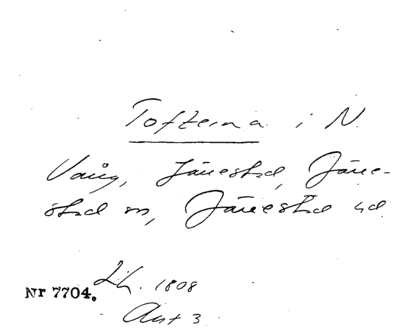 Tofterna i N.
Vång, Jänestad, Jäne-
stad m, Jänestad ud
Nr 7704. Lh. 1808
Akt 3